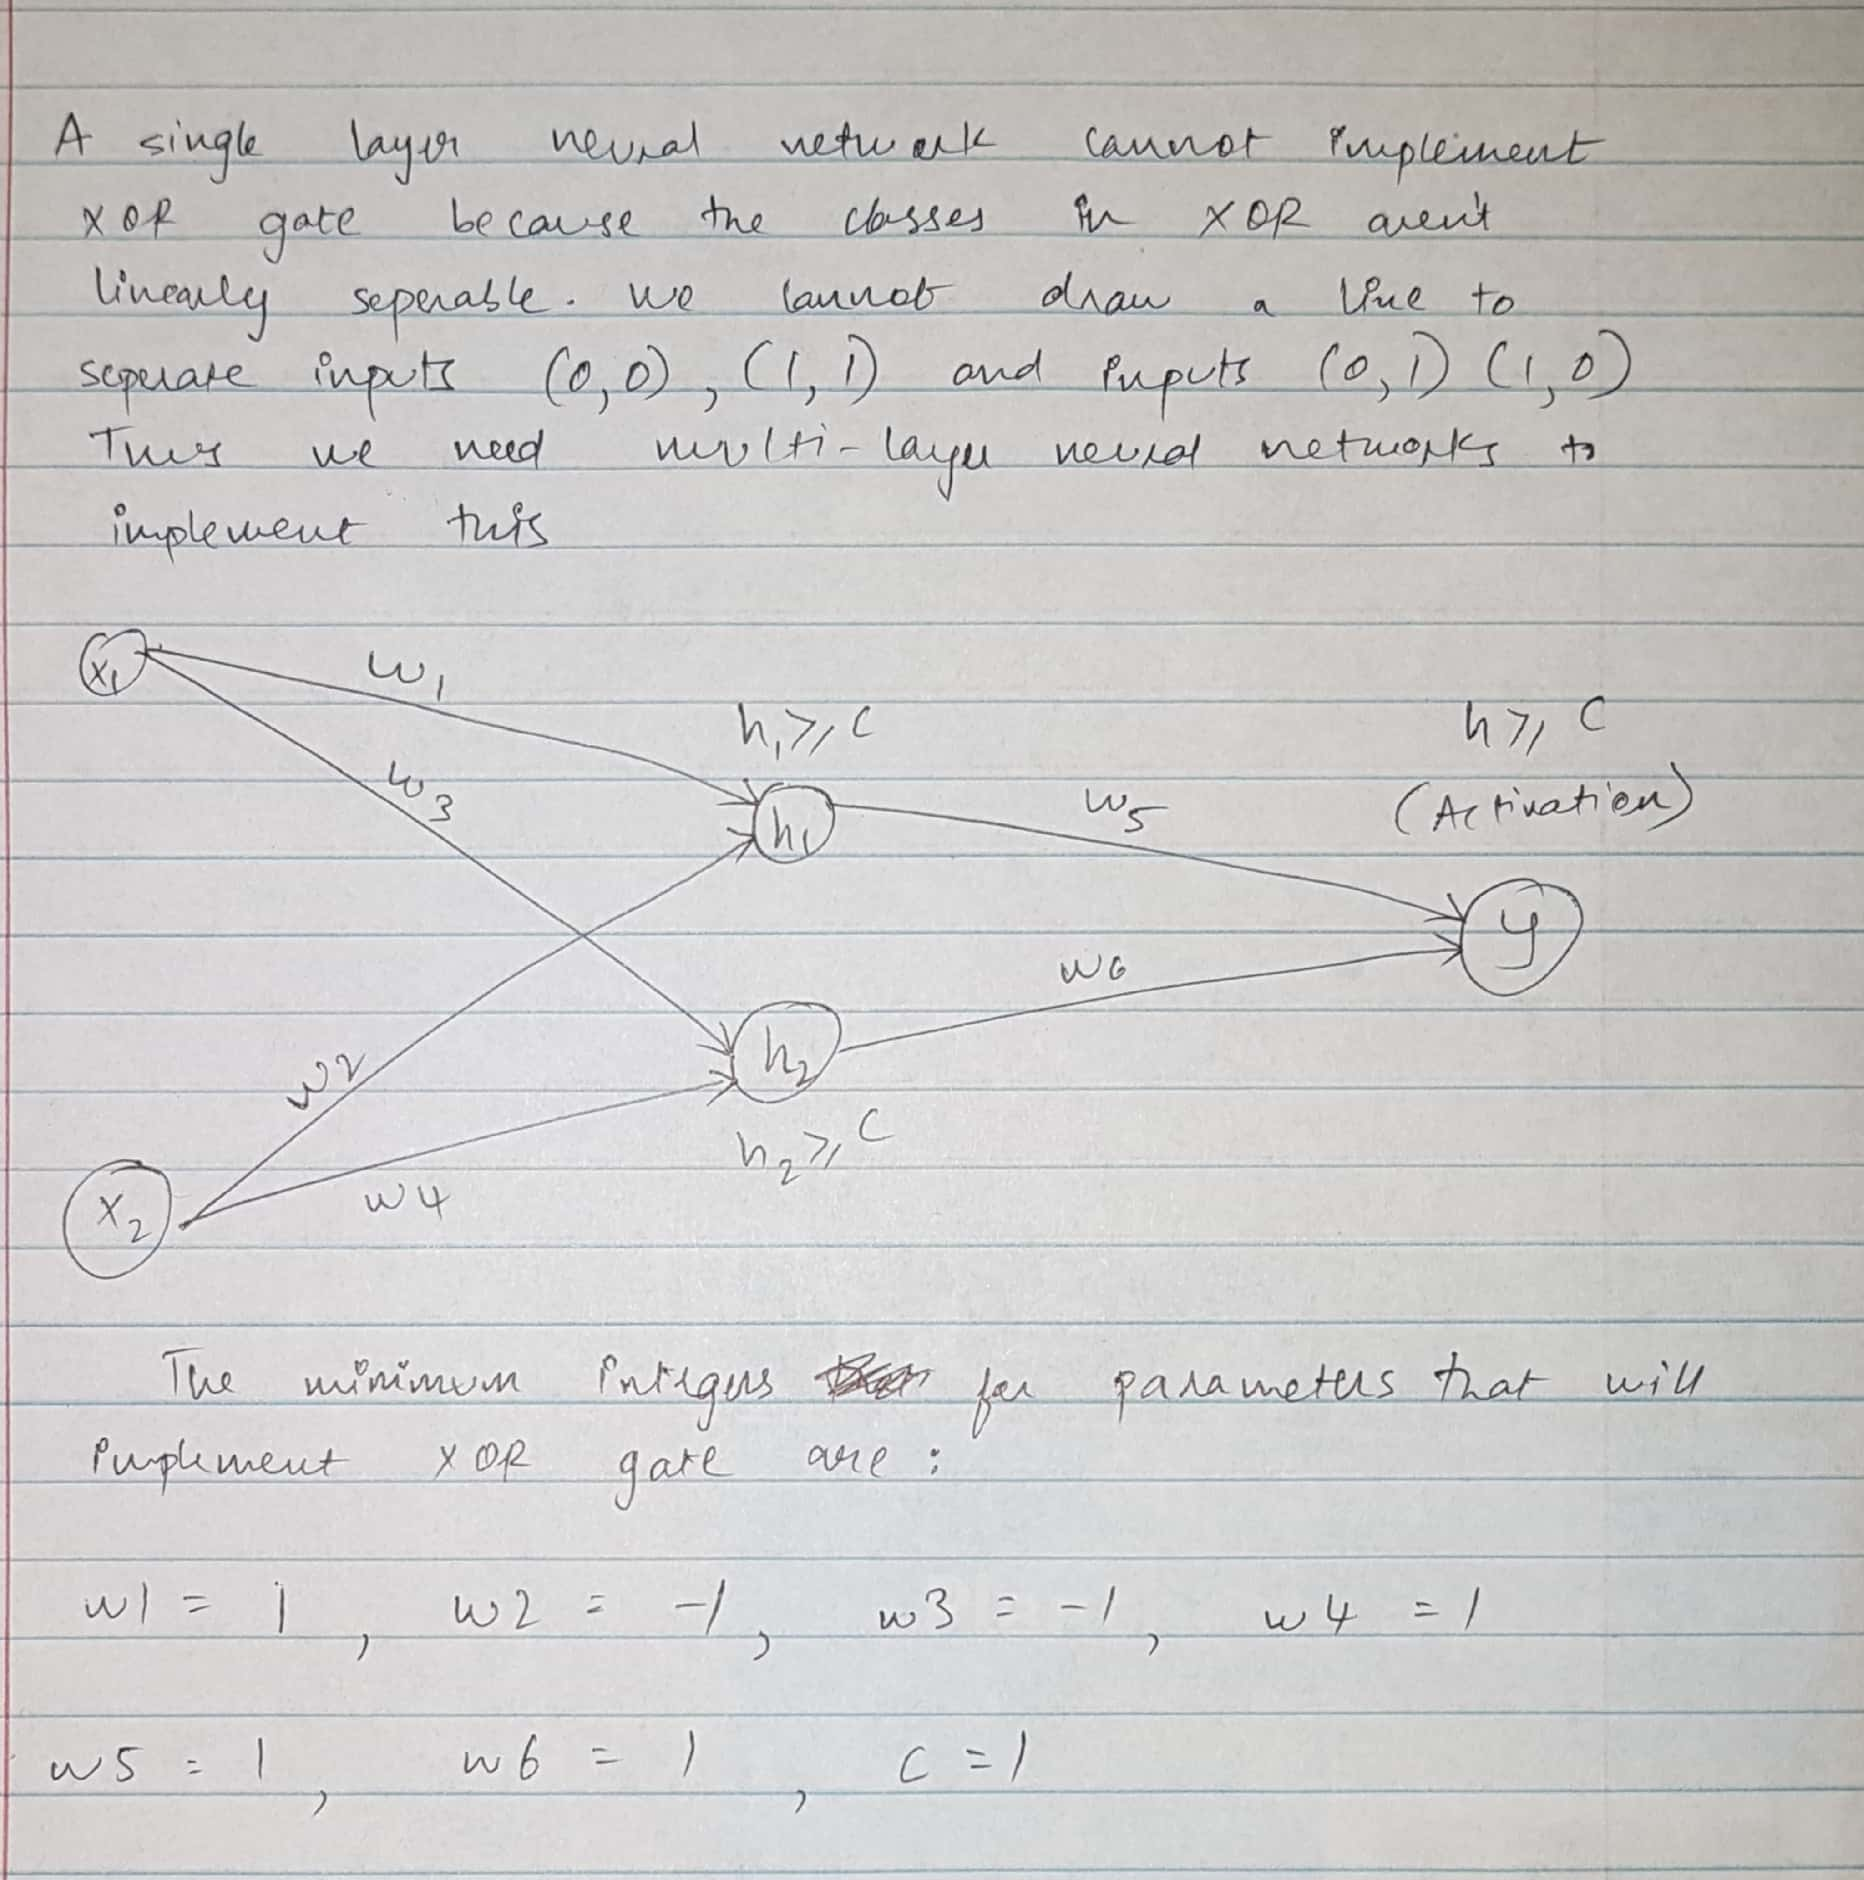 A single layer neural network cannot implement
XOR gate because the classes in XOR aren't
linearly seperable. we cannot draw a line to
seperate inputs (0,0), (1,1) and inputs (0,1) (1,0)
Thus we need multi-layer neural networks to
implement this
x₁
w₁
h₁ ⩾ C
h ⩾ C
w₃
w₅
(Activation)
h₁
y
w6
h₂
w2
h₂ ⩾ C
w4
x₂
The minimum integers for parameters that will
implement XOR gate are :
w1 = 1 , w2 = -1 , w3 = -1 , w4 = 1
w5 = 1 , w6 = 1 , C = 1